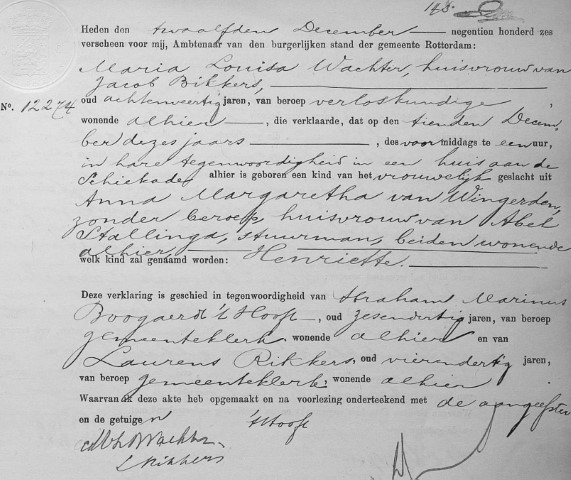 148.
Heden den twaalfden December negentien honderd zes
verscheen voor mij, Ambtenaar van den burgerlijken stand der gemeente Rotterdam:
Maria Louisa Wachter, huisvrouw van
Jacob Bikkers,
No. 12274 oud achtenveertig jaren, van beroep verloskundige,
wonende alhier, die verklaarde, dat op den tienden Decem-
ber dezes jaars, des voormiddags te een uur,
in hare tegenwoordigheid in een huis aan de
Schiekade alhier is geboren een kind van het vrouwelijk geslacht uit
Anna Margaretha van Wingerden,
zonder beroep, huisvrouw van Abel
Stallinga, stuurman, beiden wonende
alhier,
welk kind zal genaamd worden: Henriette.
Deze verklaring is geschied in tegenwoordigheid van Abraham Marinus
Boogaerdt 't Hooft, oud zesendertig jaren, van beroep
gemeenteklerk, wonende alhier en van
Laurens Rikkers, oud vierendertig jaren,
van beroep gemeenteklerk, wonende alhier
Waarvan ik deze akte heb opgemaakt en na voorlezing onderteekend met de aangeefster
en de getuigen
't Hooft
Wachter
L Rikkers